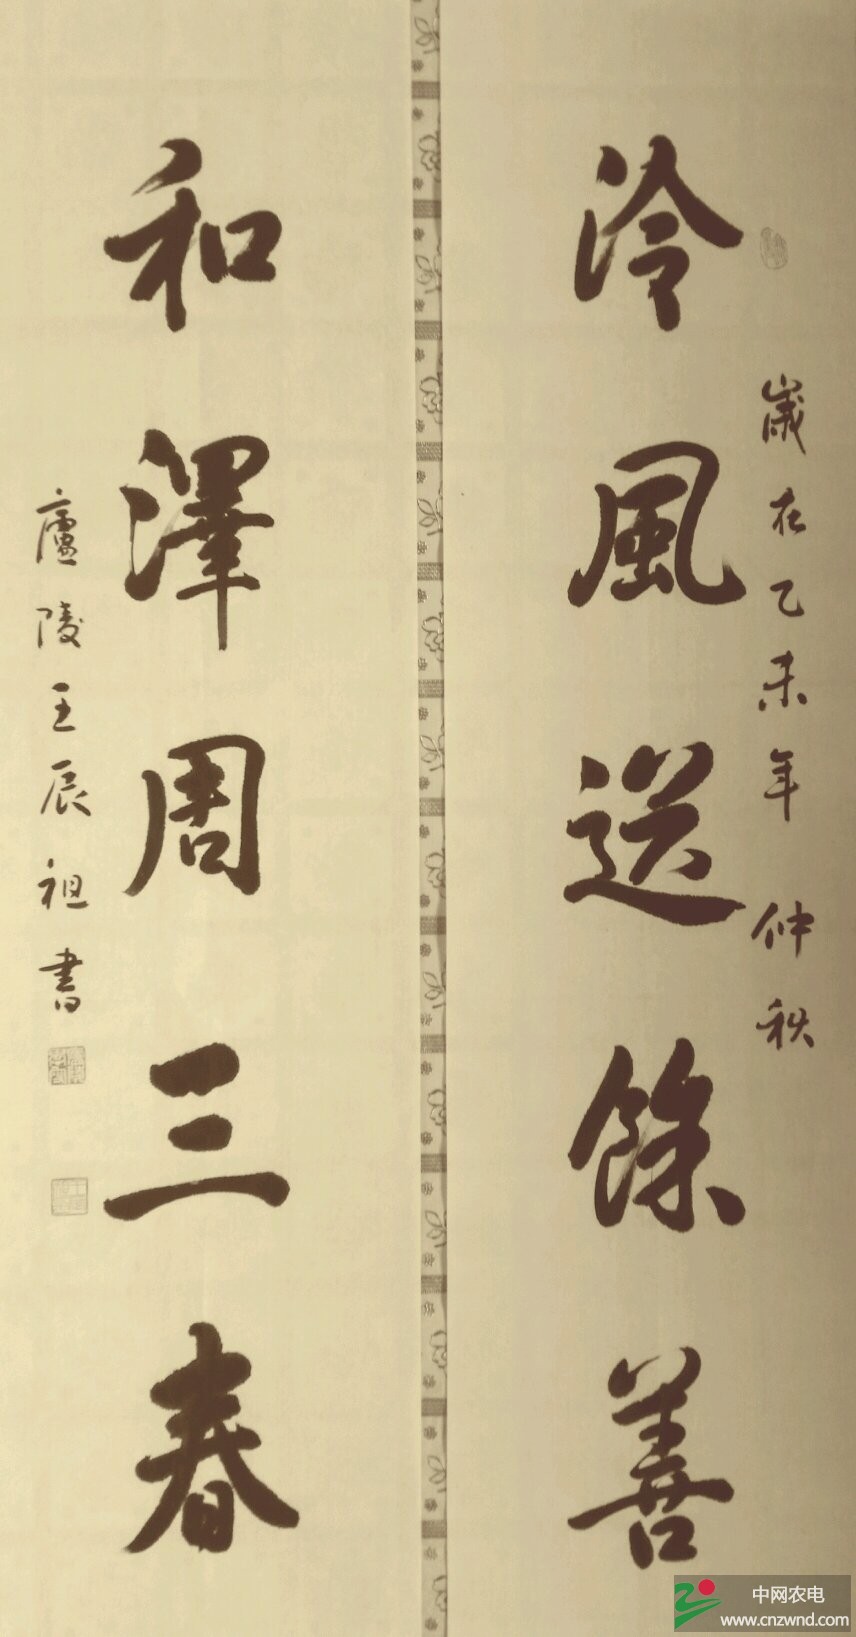 歲在乙未年仲秋
泠風送餘善
和澤周三春
廬陵王辰祖書
中网农电
www.cnzwnd.com